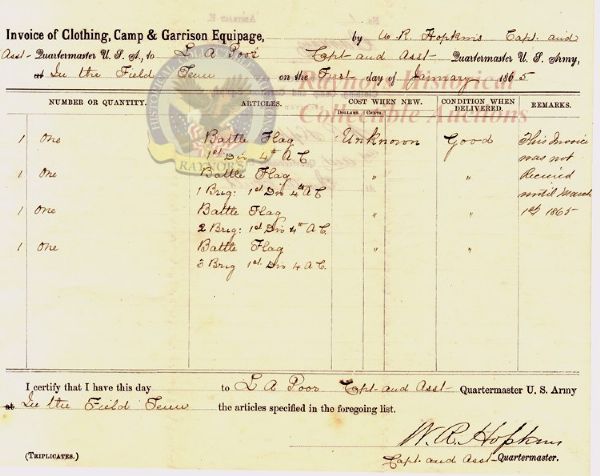 Invoice of Clothing, Camp & Garrison Equipage, by W R Hopkins Capt. and
Asst- Quartermaster U. S. A., to L A Poor Capt- and Asst- Quartermaster U. S. Army,
at In the Field Tenn on the First day of January 1865
NUMBER OR QUANTITY. ARTICLES. COST WHEN NEW. CONDITION WHEN DELIVERED. REMARKS.
DOLLARS Cents.
1 One Battle Flag Unknown Good This Invoice
1st Div 4th A.C. was not
1 One Battle Flag " " Received
1 Brig: 1st Div 4th A.C. until March
1 One Battle Flag " " 1st, 1865
2 Brig: 1st Div 4th A.C.
1 One Battle Flag " "
3 Brig 1st Div 4 A.C.
I certify that I have this day to L A Poor Capt- and Asst- Quartermaster U. S. Army
at In the Field Tenn the articles specified in the foregoing list.
W. R. Hopkins
(TRIPLICATES.) Capt- and Asst- Quartermaster.
Raynors' Historical
Collectible Auctions
RAYNORS'